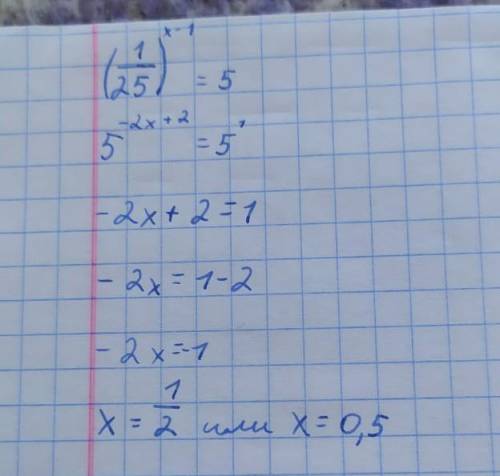 (1/25)^(x-1) = 5
5^(-2x+2) = 5^1
-2x + 2 = 1
-2x = 1-2
-2x = -1
x = 1/2 или x = 0,5